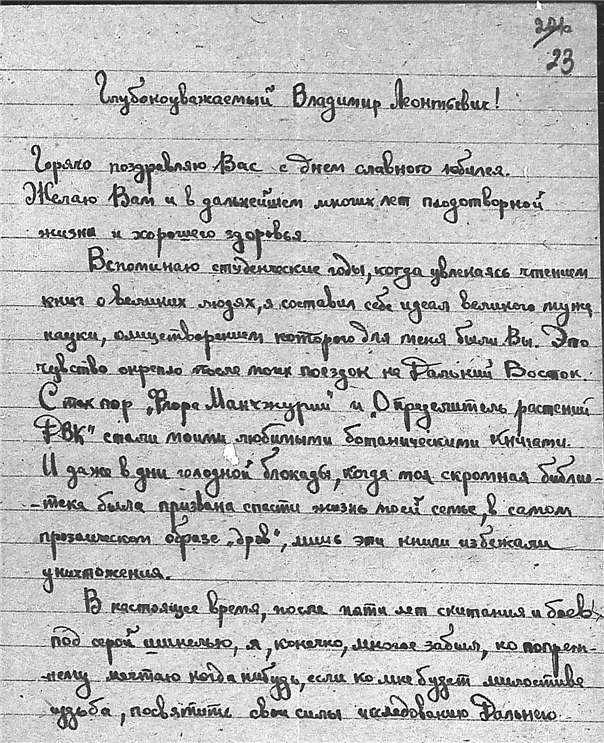 23
Глубокоуважаемый Владимир Леонтьевич!
Горячо поздравляю Вас с днем славного юбилея.
Желаю Вам и в дальнейшем многих лет плодотворной
жизни и хорошего здоровья.
Вспоминаю студенческие годы, когда увлекаясь чтением
книг о великих людях, я составил себе идеал великого мужа
науки, олицетворением которого для меня были Вы. Это
чувство окрепло после моих поездок на Дальний Восток.
С тех пор „Флора Манчжурий" и „Определитель растений
ДВК" стали моими любимыми ботаническими книгами.
И даже в дни голодной блокады, когда моя скромная библио-
-тека была призвана спасти жизнь моей семье, в самом
прозаическом образе „дров", лишь эти книги избежали
уничтожения.
В настоящее время, после пяти лет скитания и боев
под серой шинелью, я, конечно, многое забыл, но попреж-
-нему мечтаю когда нибудь, если ко мне будет милостива
судьба, посвятить свои силы исследованию Дальнего